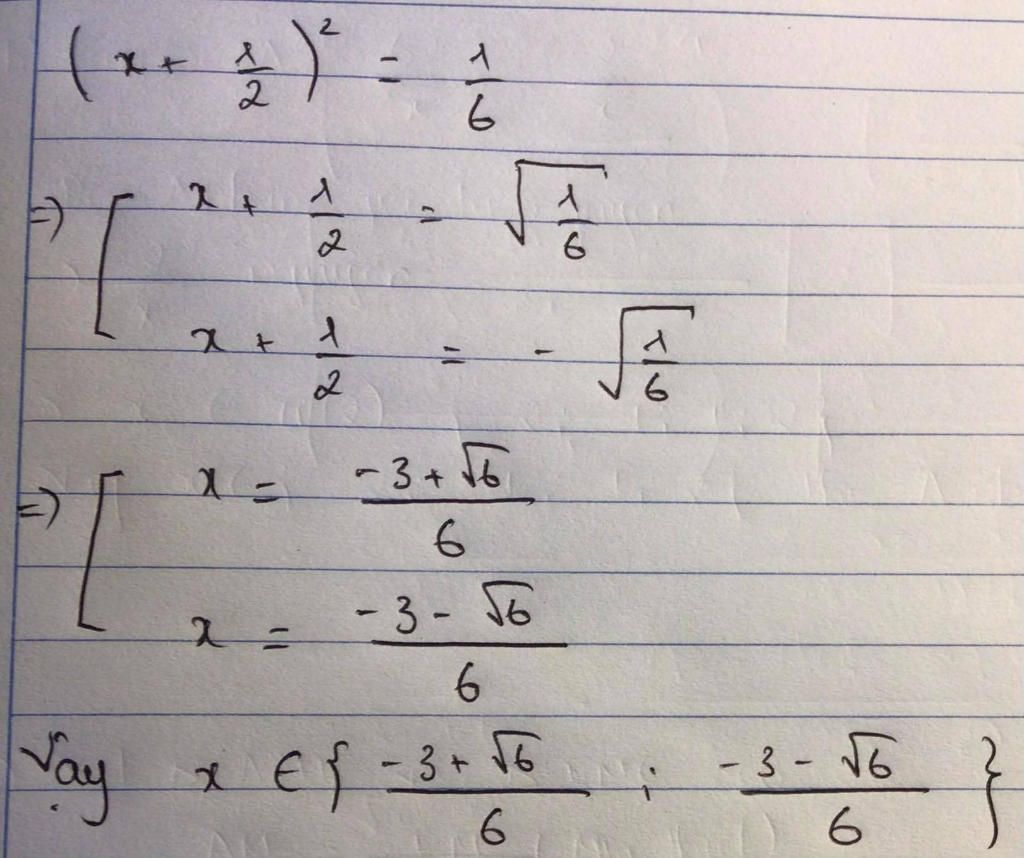 (x + 1/2)² = 1/6
=> [ x + 1/2 = √(1/6)
x + 1/2 = - √(1/6)
=> [ x = (-3 + √6)/6
x = (-3 - √6)/6
Vậy x ∈ { (-3 + √6)/6 ; (-3 - √6)/6 }